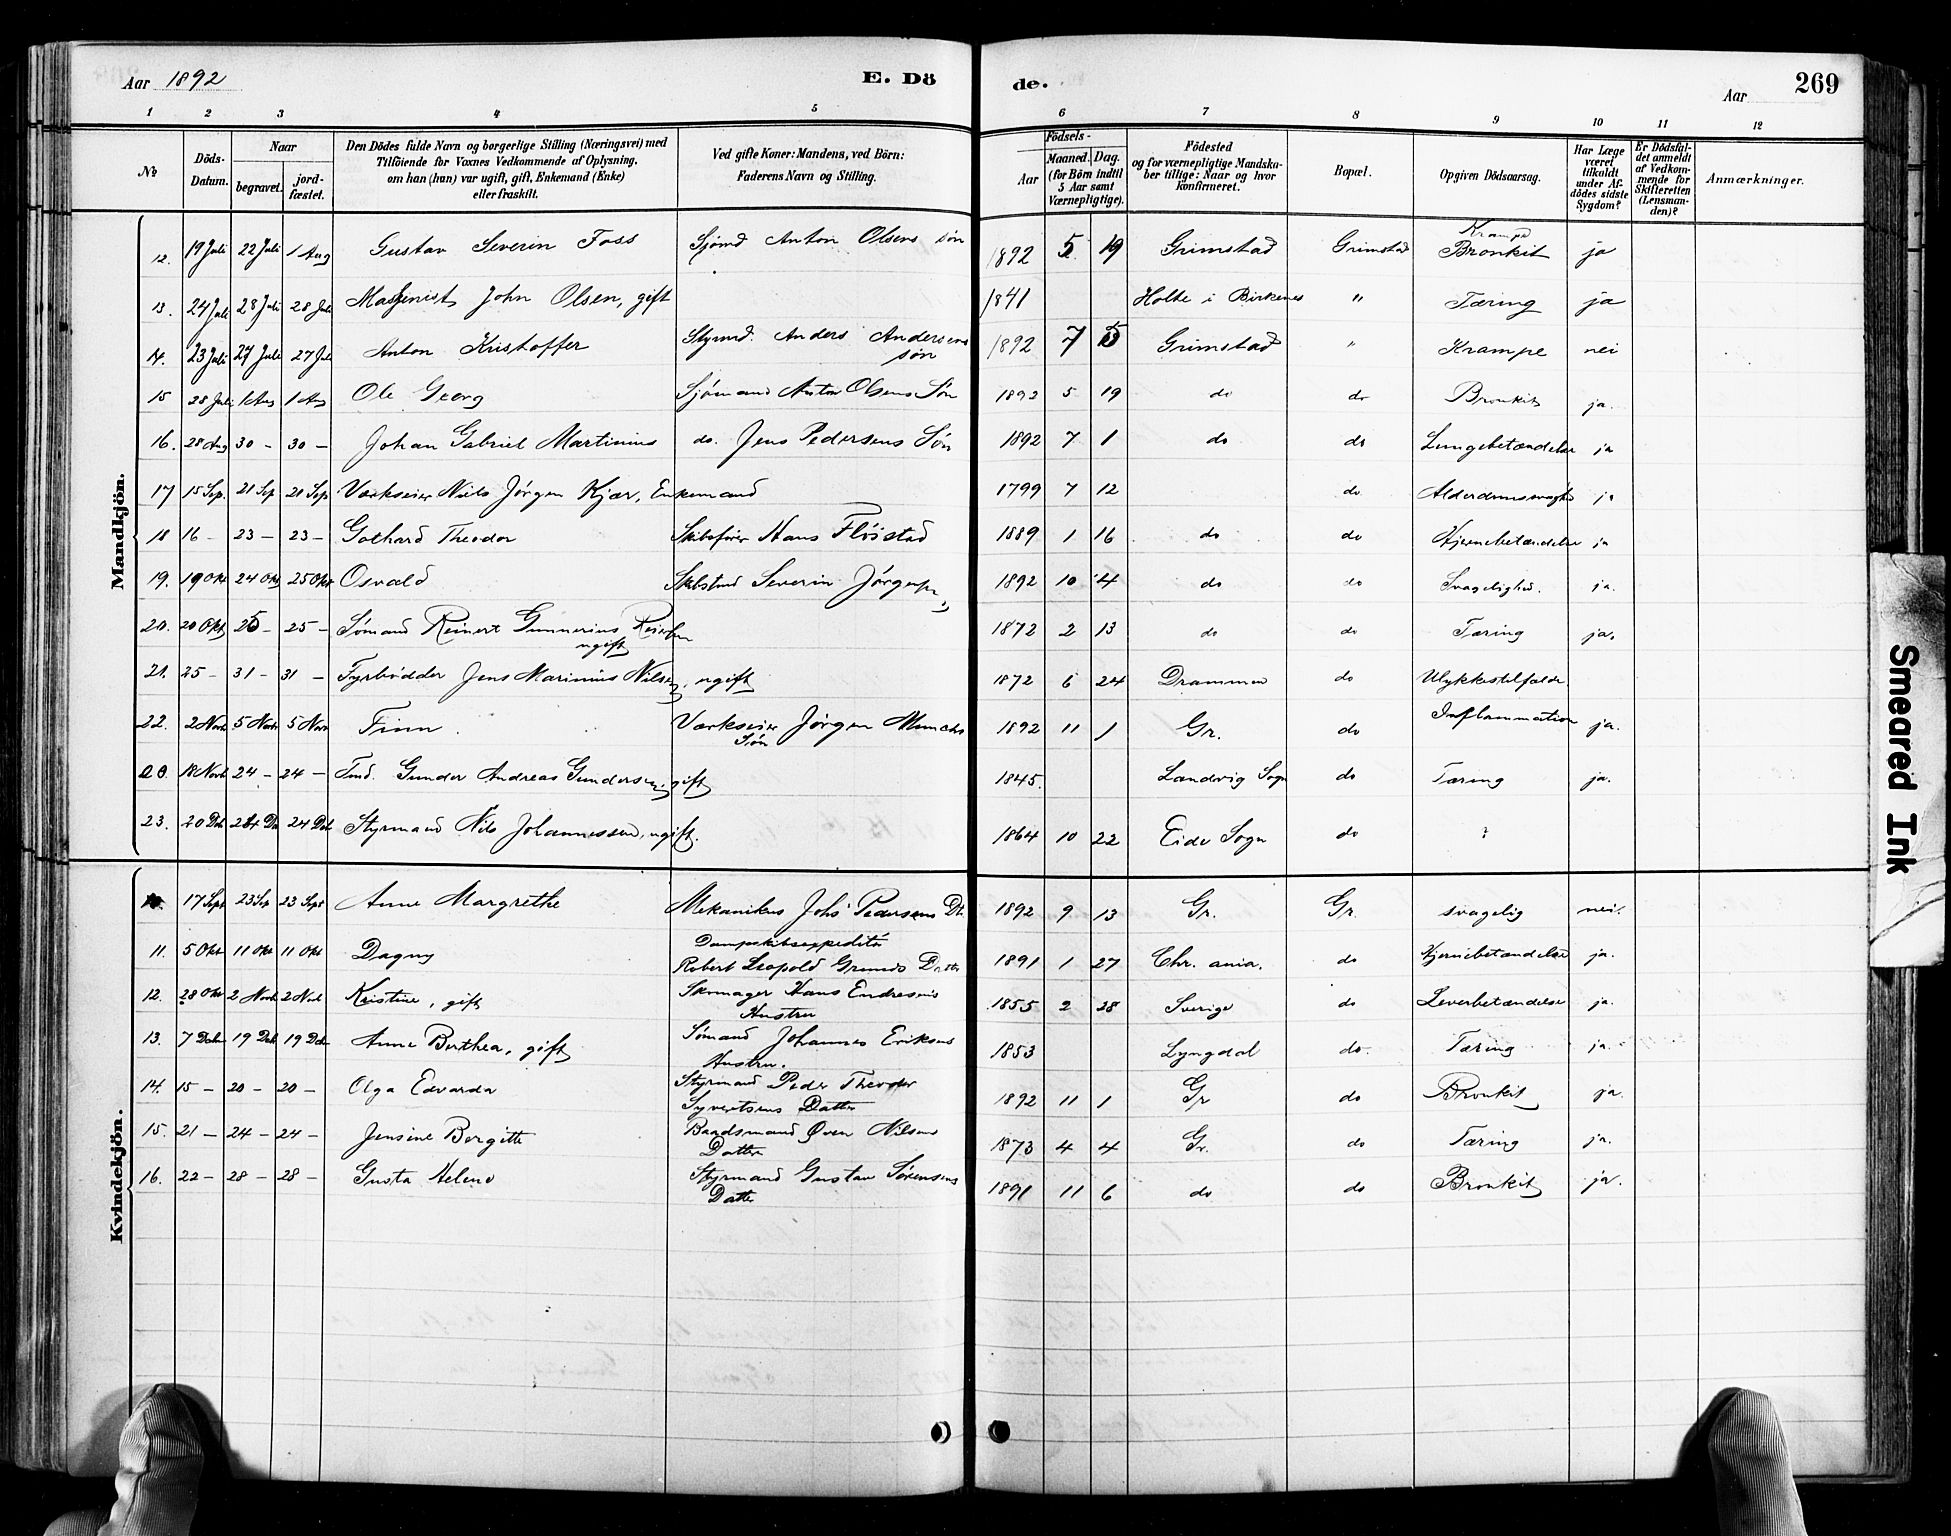 Aar 1892
E. Dö
de.
Aar
269
1 2 3 4 5 6 7 8 9 10 11 12
№
Döds-
Datum.
Naar
begravet.
jord-
fæstet.
Den Dödes fulde Navn og borgerlige Stilling (Næringsvei) med
Tilföiende for Voxnes Vedkommende af Oplysning,
om han (hun) var ugift, gift, Enkemand (Enke)
eller fraskilt.
Ved gifte Koner: Mandens, ved Börn:
Faderens Navn og Stilling.
Födsels-
Aar
Maaned. Dag.
(for Börn indtil
5 Aar samt
Værnepligtige).
Födested
og for værnepligtige Mandska-
ber tillige: Naar og hvor
konfirmeret.
Bopæl.
Opgiven Dödsaarsag.
Har Læge
været
tilkaldt
under Af-
dödes sidste
Sygdom?
Er Dödsfal-
det anmeldt
af Vedkom-
mende for
Skifteretten
(Lensman-
den)?
Anmærkninger.
Mandkjön.
12. 19 Juli 22 Juli 1 Aug Gustav Severin Foss Sjömd Anton Olsens søn 1892 5 19 Grimstad Grimstad Krampe Bronkit ja
13. 24 Juli 28 Juli 28 Juli Maskinist John Olsen, gift 1841 Holte i Birkenes " Tæring ja
14. 23 Juli 27 Juli 27 Juli Anton Kristoffer Styrmd. Anders Andersens søn 1892 7 Grimstad " Krampe nei
15 28 Juli 1 Aug 1 Aug Ole Georg Sjømand Anton Olsens Søn 1892 5 19 do do Bronkit ja.
16. 28 Aug 30 - 30 - Johan Gabriel Martinius do. Jens Pedersens Søn 1892 7 1 do do Lungebetændelse ja
17 15 Sep. 21 Sep 21 Sep. Værkseier Niels Jörgen Kjær, Enkemand 1799 7 12 do Alderdomssvaghed ja
18 16 - 23 - 23 - Gothard Theodor Skibsfører Hans Fløistad 1889 1 16 do do Hjernebetændelse ja
19. 19 Okt 24 Okt 25 Okt Osvald Severin 1892 10 4 do do Svagelighed. ja.
20. 20 Okt 25 - 25 - Sømand Reinert Gunnerius ugift 1872 2 13 do do Tæring ja.
21. 25 - 31 - 31 - Fyrbødder Jens Marinius Nilsen, ugift 1872 6 24 Drammen do Ulykkestilfælde.
22. 2 Novb 5 Novb 5 Nov Finn. Værkseier Jörgen Munchs Søn 1892 11 1 Gr. do Inflammation ja.
18 Novb 24 - 24 - Tmd. Gunder Andreas Gundersen, gift 1845. Landvig Sogn do Tæring ja.
23. 20 Deb 24 Deb 24 Deb Styrmand Nils Johannessen, ugift. 1864 10 22 Eide Sogn do ?
Kvindekjön.
17 Sept 23 Sep 23 Sept Anne Margrethe Mekanikus Johs Pedersens Dt. 1892 9 13 Gr. Gr. svagelig nei.
11. 5 Okt 11 Okt 11 Okt Dagny Dampskibsexpeditör
Robert Leopold Datter 1891 1 27 Chr. ania. do Hjernebetændelse ja.
12. 28 Okt 2 Novb 2 Novb Kristine, gift Skomager Hans Endresens
Hustru 1855 2 28 Sverige do Leverbetændelse ja.
13. 7 Deb 19 Deb 19 Deb Anne Berthea, gift Sømand Johannes Eriksens
Hustru. 1853 Lyngdal do. Tæring ja.
14. 15 - 20 - 20 - Olga Edvarda Styrmand Peder Theodor
Syvertsens Datter 1892 11 1 Gr do Bronkit ja.
15. 21 - 24 - 24 - Jensine Bergitte Baadsmand Øven Nilsens
Datter 1873 4 4 Gr. do Tæring ja.
16. 22 - 28 - 28 - Gusta Helene Styrmand Gustav Sørensens
Datter 1891 11 6 do do Bronkit ja.
Smeared Ink